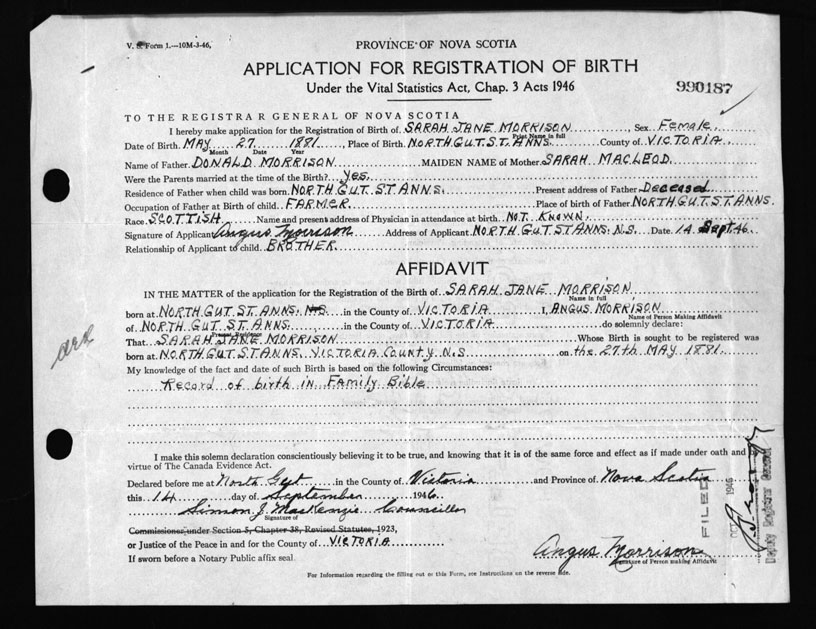 V. S. Form 1.—10M-3-46.
PROVINCE OF NOVA SCOTIA
APPLICATION FOR REGISTRATION OF BIRTH
Under the Vital Statistics Act, Chap. 3 Acts 1946
990187
TO THE REGISTRAR GENERAL OF NOVA SCOTIA
I hereby make application for the Registration of Birth of SARAH JANE MORRISON, Sex Female.
Print Name in full
Date of Birth. MAY 27 1881, Place of Birth. NORTH GUT ST. ANNS. County of VICTORIA.
Month Date Year
Name of Father. DONALD MORRISON MAIDEN NAME of Mother. SARAH MACLEOD.
Were the Parents married at the time of the Birth? yes.
Residence of Father when child was born. NORTH GUT ST ANNS. Present address of Father Deceased
Occupation of Father at Birth of child. FARMER Place of birth of Father. NORTH GUT ST ANNS.
Race. SCOTTISH Name and present address of Physician in attendance at birth. NOT KNOWN.
Signature of Applicant Angus Morrison Address of Applicant. NORTH GUT ST ANNS. N.S. Date. 14 Sept. 46.
Relationship of Applicant to child. BROTHER.
AFFIDAVIT
IN THE MATTER of the application for the Registration of the Birth of SARAH JANE MORRISON
Name in full
born at NORTH GUT ST. ANNS. N.S. in the County of VICTORIA I, ANGUS MORRISON
Name of Person Making Affidavit
of NORTH GUT ST. ANNS. in the County of VICTORIA do solemnly declare:
Present Residence
That SARAH JANE MORRISON Whose Birth is sought to be registered was
born at NORTH GUT ST ANNS. VICTORIA COUNTY N.S. on the 27th MAY 1881.
My knowledge of the fact and date of such Birth is based on the following Circumstances:
Record of birth in Family Bible
I make this solemn declaration conscientiously believing it to be true, and knowing that it is of the same force and effect as if made under oath and by
virtue of The Canada Evidence Act.
Declared before me at North Gut in the County of Victoria and Province of Nova Scotia
this 14 day of September 1946.
Simon J. MacKenzie Councillor
Signature of
Commissioner under Section 5, Chapter 38, Revised Statutes, 1923,
or Justice of the Peace in and for the County of VICTORIA
If sworn before a Notary Public affix seal.
Angus Morrison
Signature of Person making Affidavit
For Information regarding the filling out of this Form, see Instructions on the reverse side.
FILED
1946
Deputy Registrar General